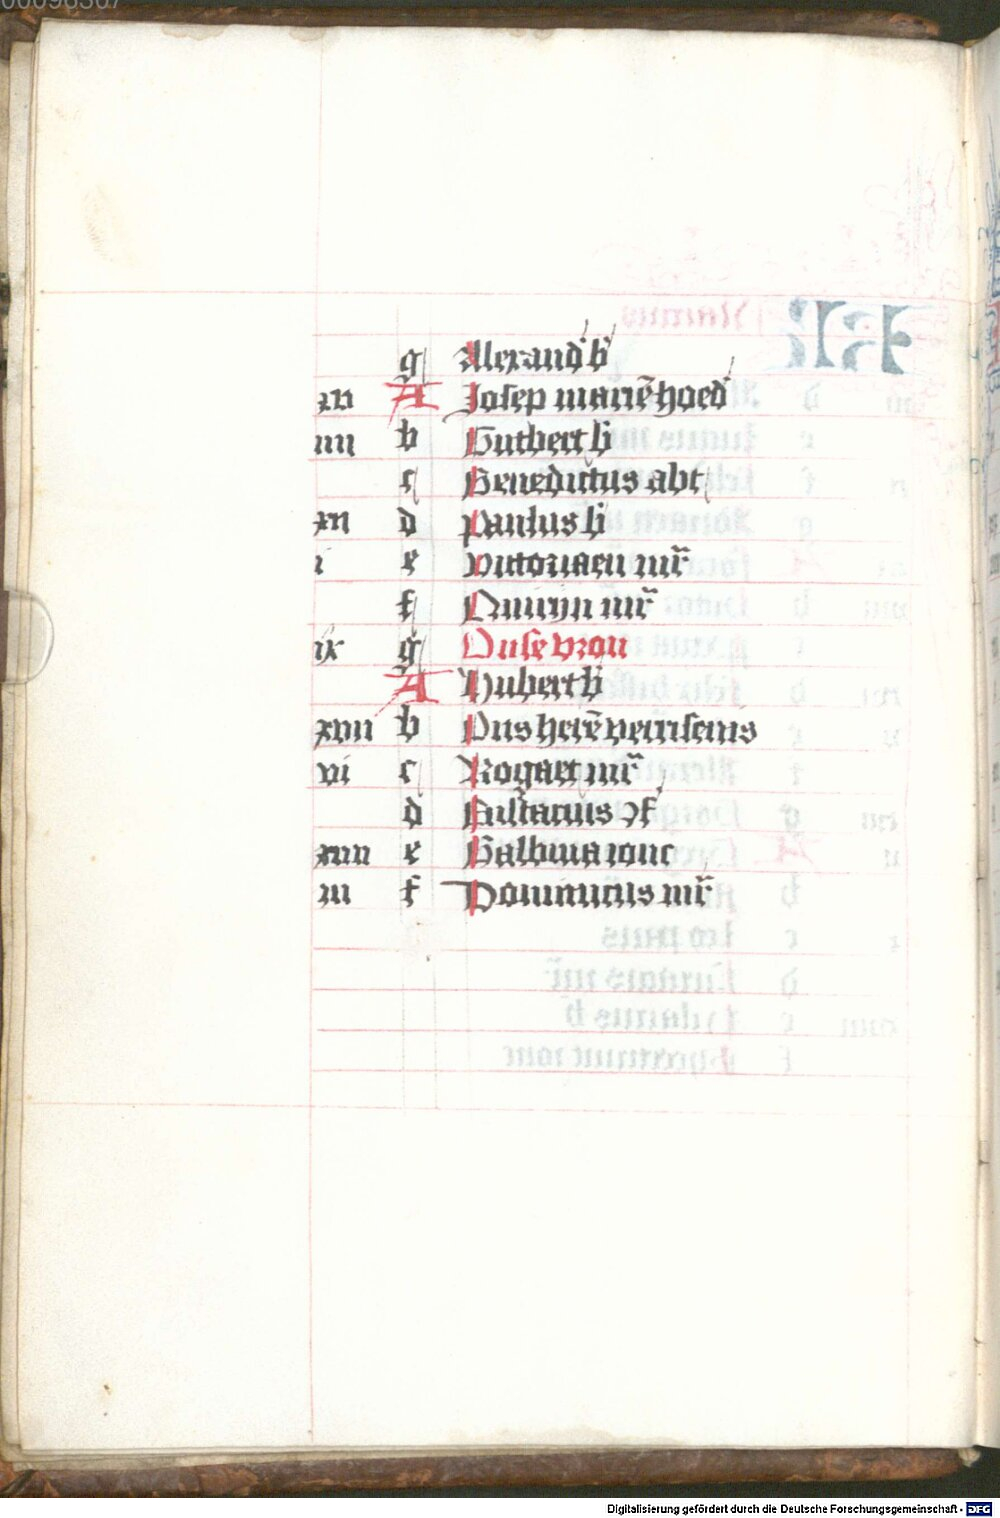 g Alexand' b'
xvi A Josep mariē hoed'
v b Gutbert b'
c Benedictus abt
xiii d Paulus b'
ii e Victoriaen mr̄
f Quirijn mr̄
x g Onse vrou
A Hubert b'
xviii b Ons herē verrisenis
vii c Rogaet mr̄
d Eustacius cf'
xv e Balbina ionc
iiii f Dominicus mr̄
Digitalisierung gefördert durch die Deutsche Forschungsgemeinschaft - DFG